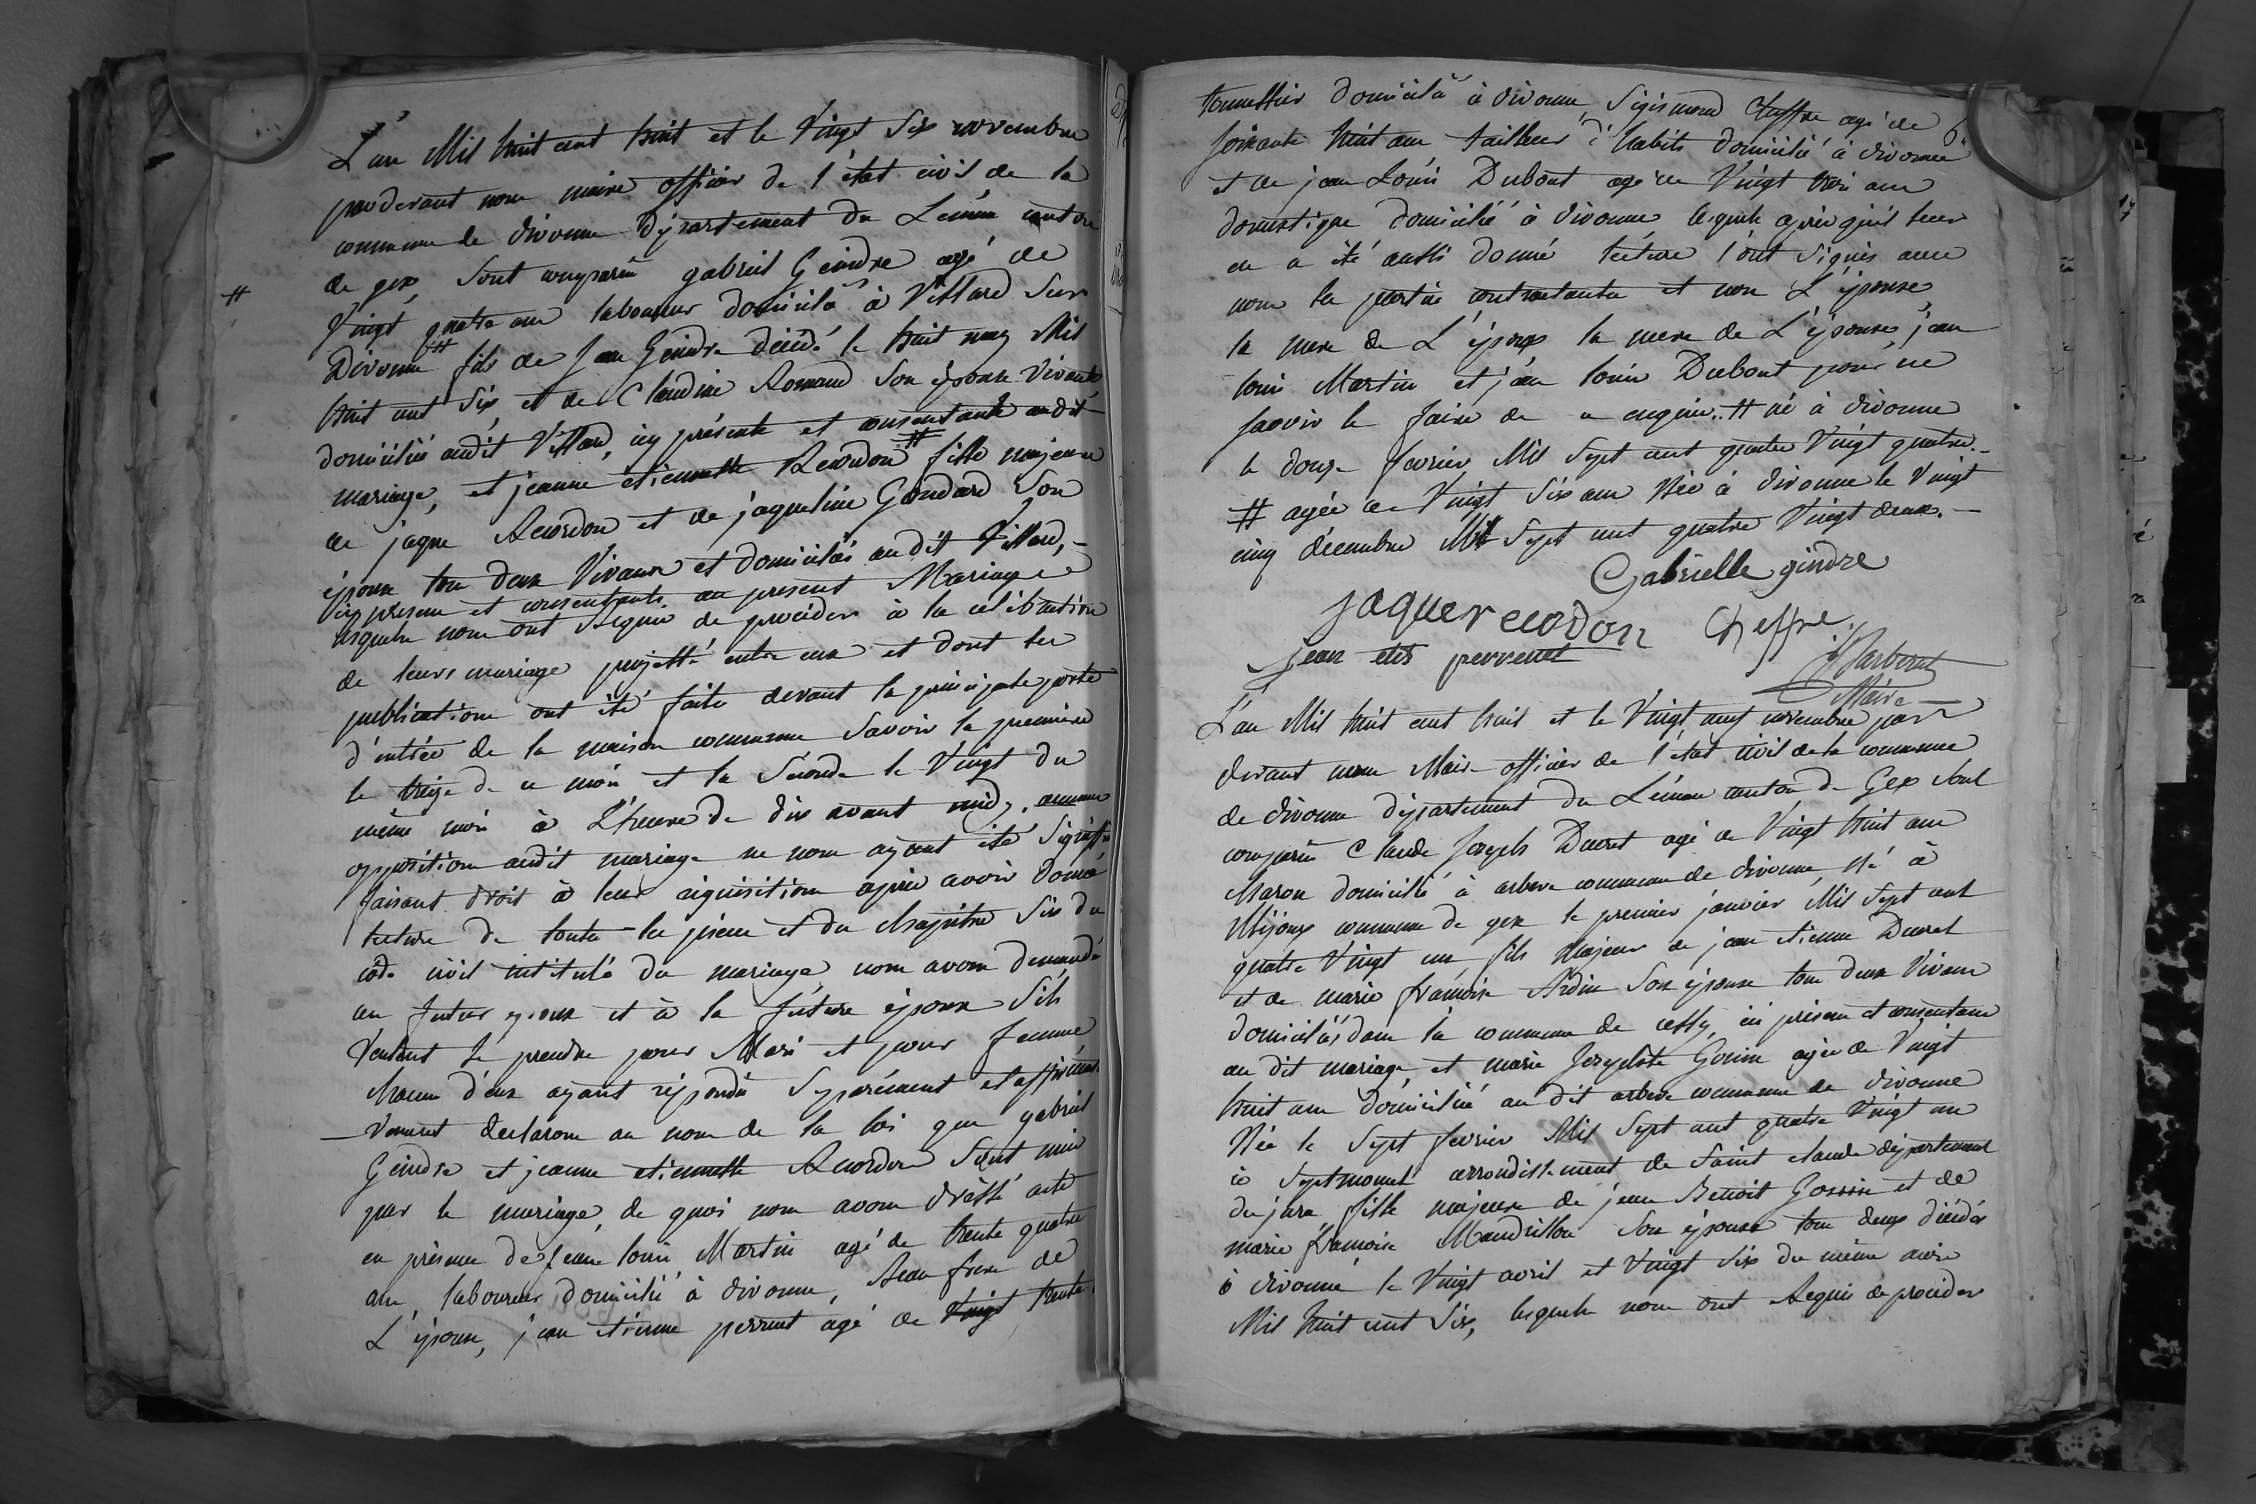 L'an Mil huit cent huit et le Vingt Six novembre
pardevant nous maire officier de l'état civil de la
commune de divonne Département du Leman canton
de gex, Sont comparus gabriel Geindre agé de
#
Vingt quatre ans laboureur domicilié à Villard Sur
Divonne # fils de Jean Geindre décédé le huit may Mil
huit cent Six, et de Claudine Romand Son épouse Vivante
domiciliée audit Villard, icy présente et consentante audit
mariage, et jeanne etiennette Recordon # fille majeure
de jaque Recordon et de jaqueline Gondard Son
épouse tous deux Vivans et domiciliés au dit Villard,
icy presens et consentants au present Mariage
lesquels nous ont Requis de proceder à la célébration
de leurs mariage projetté entre eux et dont les
publications ont été faites devant la principale porte
d'entrée de la maison commune Savoir la premiere
le treize de ce mois et la Séconde le Vingt du
même mois à L'heure de dix avant midy, aucune
opposition audit mariage ne nous ayant été Signifié
faisant droit à leur réquisition après avoir donné
lecture de toutes les pièces et du chapitre Six du
code civil intitulé du mariage nous avons demandé
au futur epoux et à la future épouse S'ils
Veulent Se prendre pour Mari et pour femme
chacun d'eux ayant répondu Separément et affirmati-
vement declarons au nom de la loi que gabriel
Geindre et jeanne etiennette Recordon Sont unis
par le mariage, de quoi nous avons dréssé acte
en présence de Jean louis Martin agé de trente quatre
ans, laboureur domicilié à divonne, Beau frere de
L'épouse, jean etienne perrenet agé de Vingt trente
domicilié à divonne, Sigismond Cheffre agé de
Soixante huit ans tailleur d'habits domicilié à divonne
et de jean Louis Dubout agé de Vingt trois ans
domestique domicilié à divonne, lesquels après qu'il leur
en a été aussi donné lecture l'ont Signés avec
nous les parties contractantes et non L'épouse,
la mere de L'époux la mere de L'épouse, jean
louis Martin et jean louis Dubout pour ne
Savoir le faire de ce enquis.. # né à divonne
le douze fevrier Mil Sept cent quatre Vingt quatre..
# agée de Vingt Six ans Née à divonne le Vingt
cinq décembre Mil Sept cent quatre Vingt deux.
Gabrielle gindre
jaque recodon Cheffre
jean etis perrenet
Maire
L'an Mil huit cent huit et le Vingt neuf novembre par
devant nous Maire officier de l'état civil de la commune
de divonne département du Léman canton de Gex Sont
comparus Claude Joseph Ducret agé de Vingt huit ans
Maçon domicilié à arbere commune de divonne, Né à
Mijoux commune de gex le premier janvier Mil Sept cent
quatre Vingt un fils Majeur de jean etienne Ducret
et de marie francoise Son épouse tous deux Vivans
domiciliés dans la commune de cessy, ici présens et consentans
au dit mariage, et marie Josephte Gossin agée de Vingt
huit ans domiciliée au dit arbere commune de divonne
Née le Sept fevrier Mil Sept cent quatre Vingt un
à Septmoncel arrondissement de Saint claude département
du jura fille majeure de jean Benoit Gossin et de
marie francoise Mandrillon Son épouse tous deux décédés
à divonne le Vingt avril et Vingt Six du même mois
Mil huit cent Six, lesquels nous ont Requis de proceder